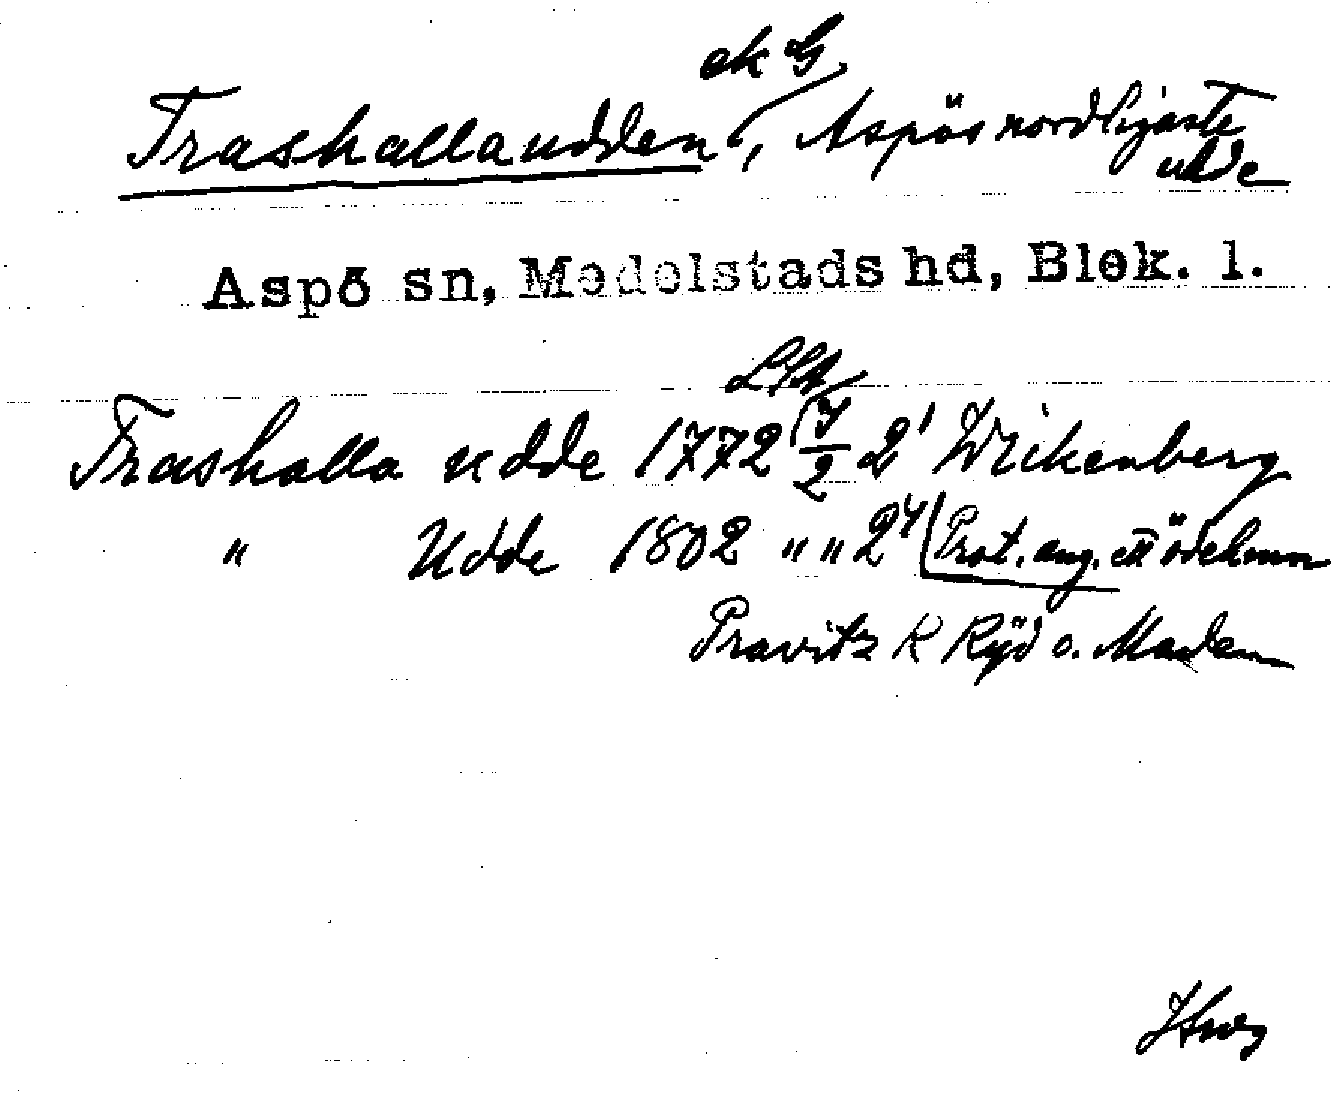 ek G
Trashallaudden, Aspös nordligaste
udde
Aspö sn, Medelstads hd, Blek. l.
LSA
Trashalla udde 1772 7/2 2¹ Wikenberg
" Udde 1802 " " 2⁴ Prot. ang. ett ödehem
Pravitz K Ryd o. Maden